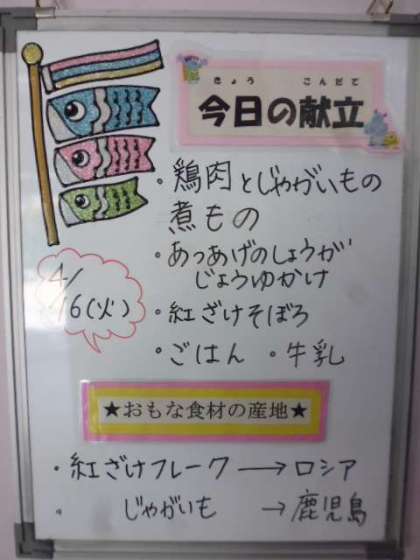 きょう こんだて
今日の献立
・鶏肉とじゃがいもの
煮もの
・あつあげのしょうが
じょうゆかけ
・紅ざけそぼろ
・ごはん ・牛乳
4/16(火)
★おもな食材の産地★
・紅ざけフレーク→ロシア
・じゃがいも→鹿児島